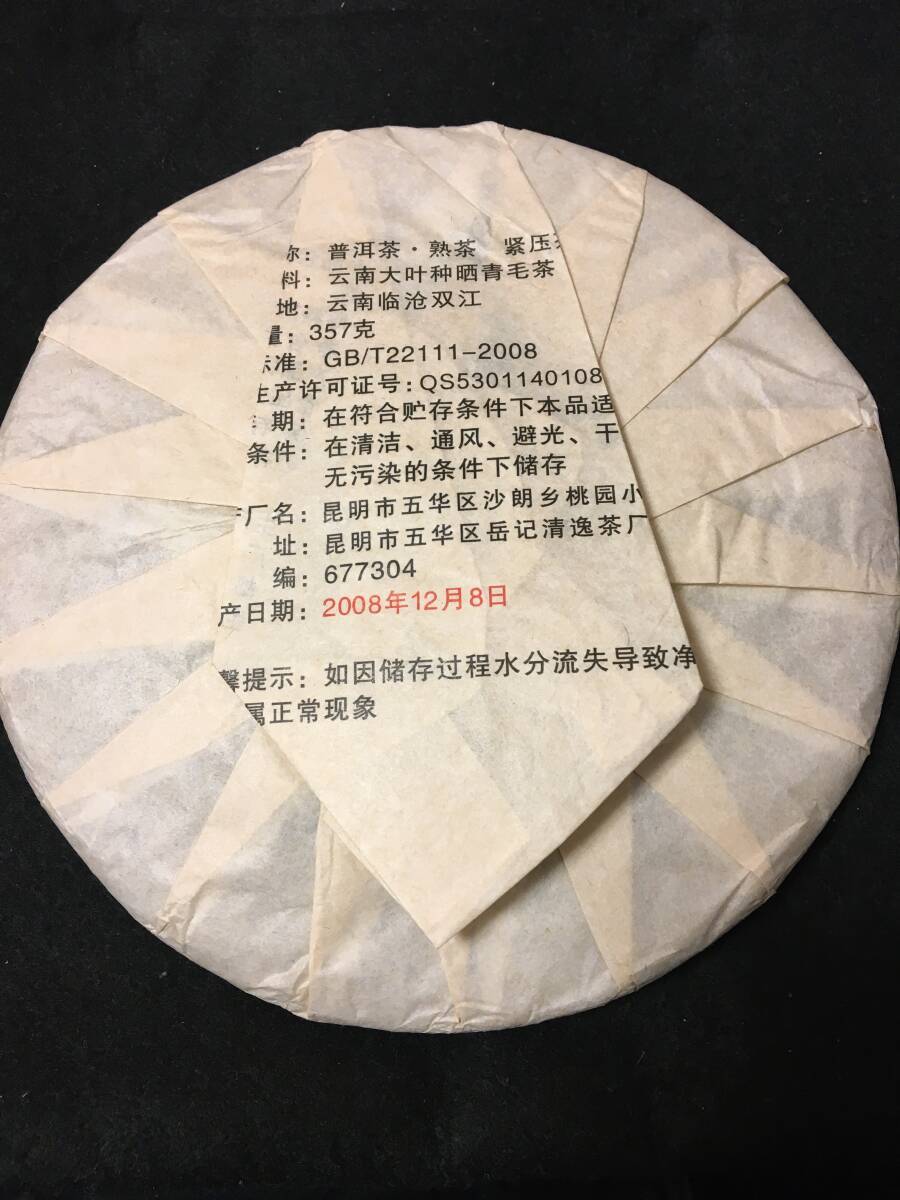 称：普洱茶·熟茶 紧压茶
料：云南大叶种晒青毛茶
地：云南临沧双江
量：357克
标准：GB/T22111-2008
生产许可证号：QS5301140108
期：在符合贮存条件下本品适
条件：在清洁、通风、避光、干
无污染的条件下储存
厂名：昆明市五华区沙朗乡桃园小
址：昆明市五华区岳记清逸茶厂
编：677304
产日期：2008年12月8日
馨提示：如因储存过程水分流失导致净
属正常现象